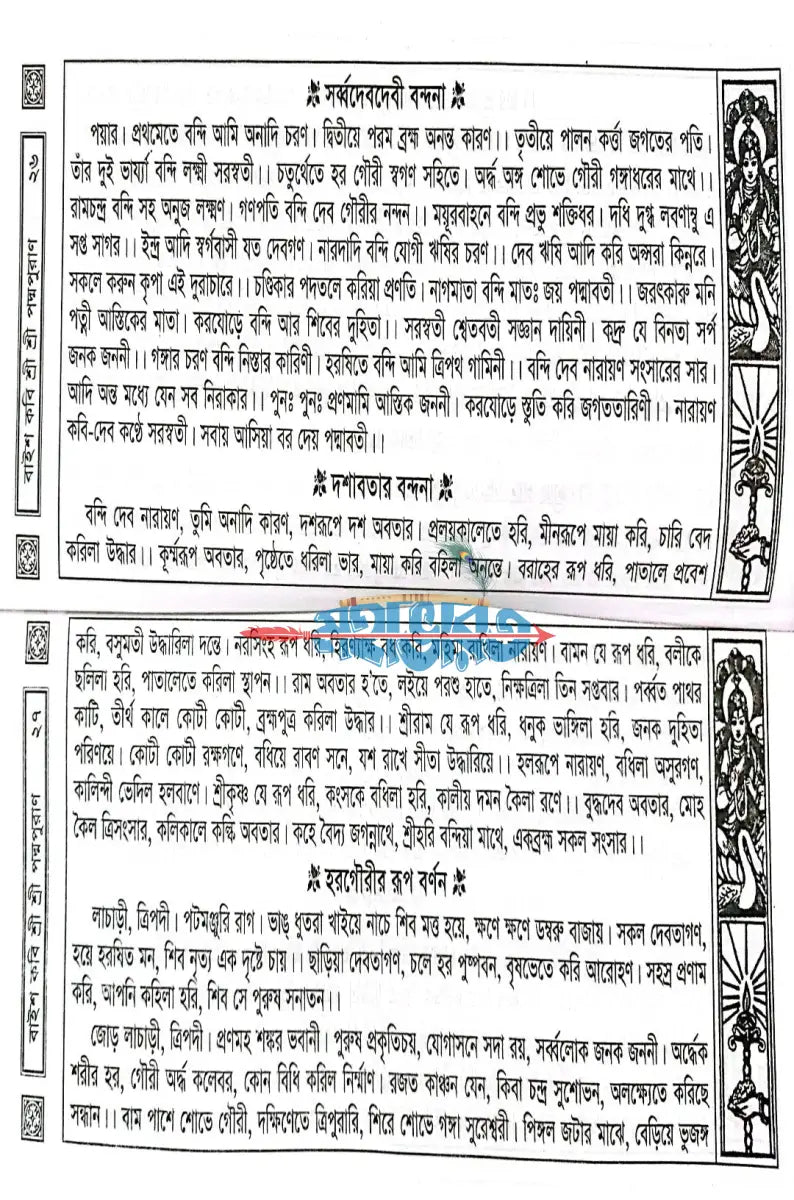 সর্ব্বদেবদেবী বন্দনা
পয়ার। প্রথমেতে বন্দি আমি অনাদি চরণ। দ্বিতীয়ে পরম ব্রহ্ম অনন্ত কারণ।। তৃতীয়ে পালন কর্ত্তা জগতের পতি।
তাঁর দুই ভার্য্যা বন্দি লক্ষ্মী সরস্বতী।। চতুর্থেতে হর গৌরী স্বগণ সহিতে। অর্দ্ধ অঙ্গ শোভে গৌরী গঙ্গাধরের মাথে।।
রামচন্দ্র বন্দি সহ অনুজ লক্ষ্মণ। গণপতি বন্দি দেব গৌরীর নন্দন।। ময়ূরবাহনে বন্দি প্রভু শক্তিধর। দধি দুগ্ধ লবণাম্বু এ
সপ্ত সাগর।। ইন্দ্র আদি স্বর্গবাসী যত দেবগণ। নারদাদি বন্দি যোগী ঋষির চরণ।। দেব ঋষি আদি করি অপ্সরা কিন্নরে।
সকলে করুন কৃপা এই দুরাচারে।। চণ্ডিকার পদতলে করিয়া প্রণতি। নাগমাতা বন্দি মাতঃ জয় পদ্মাবতী।। জরৎকারু মনি
পত্নী আস্তিকের মাতা। করযোড়ে বন্দি আর শিবের দুহিতা।। সরস্বতী শ্বেতবতী সজ্ঞান দায়িনী। কদ্রু যে বিনতা সর্প
জনক জননী।। গঙ্গার চরণ বন্দি নিস্তার কারিণী। হরষিতে বন্দি আমি ত্রিপথ গামিনী।। বন্দি দেব নারায়ণ সংসারের সার।
আদি অন্ত মধ্যে যেন সব নিরাকার।। পুনঃ পুনঃ প্রণমামি আস্তিক জননী। করযোড়ে স্তুতি করি জগততারিণী।। নারায়ণ
কবি-দেব কণ্ঠে সরস্বতী। সবায় আসিয়া বর দেয় পদ্মাবতী।।
দশাবতার বন্দনা
বন্দি দেব নারায়ণ, তুমি অনাদি কারণ, দশরূপে দশ অবতার। প্রলয়কালেতে হরি, মীনরূপে মায়া করি, চারি বেদ
করিলা উদ্ধার।। কূর্ম্মরূপ অবতার, পৃষ্ঠেতে ধরিলা ভার, মায়া করি বহিলা অনন্তে। বরাহের রূপ ধরি, পাতালে প্রবেশ
বাইশ কবি শ্রী শ্রী পদ্মপুরাণ
২৬
মহাভারত
করি, বসুমতী উদ্ধারিলা দন্তে। নরসিংহ রূপ ধরি, হিরণ্যাক্ষ বধ করি, মহিমা রাখিলা নারায়ণ। বামন যে রূপ ধরি, বলীকে
ছলিলা হরি, পাতালেতে করিলা স্থাপন।। রাম অবতার হ'তে, লইয়ে পরশু হাতে, নিক্ষত্রিলা তিন সপ্তবার। পর্ব্বত পাথর
কাটি, তীর্থ কালে কোটী কোটী, ব্রহ্মপুত্র করিলা উদ্ধার।। শ্রীরাম যে রূপ ধরি, ধনুক ভাঙ্গিলা হরি, জনক দুহিতা
পরিণয়ে। কোটী কোটী রক্ষগণে, বধিয়ে রাবণ সনে, যশ রাখে সীতা উদ্ধারিয়ে।। হলরূপে নারায়ণ, বধিলা অসুরগণ,
কালিন্দী ভেদিল হলবাণে। শ্রীকৃষ্ণ যে রূপ ধরি, কংসকে বধিলা হরি, কালীয় দমন কৈলা রণে।। বুদ্ধদেব অবতার, মোহ
কৈল ত্রিসংসার, কলিকালে কল্কি অবতার। কহে বৈদ্য জগন্নাথে, শ্রীহরি বন্দিয়া মাথে, একব্রহ্ম সকল সংসার।।
হরগৌরীর রূপ বর্ণন
লাচাড়ী, ত্রিপদী। পটমঞ্জুরি রাগ। ভাঙ ধুতরা খাইয়ে নাচে শিব মত্ত হয়ে, ক্ষণে ক্ষণে ডম্বরু বাজায়। সকল দেবতাগণ,
হয়ে হরষিত মন, শিব নৃত্য এক দৃষ্টে চায়।। ছাড়িয়া দেবতাগণ, চলে হর পুষ্পবন, বৃষভেতে করি আরোহণ। সহস্র প্রণাম
করি, আপনি কহিলা হরি, শিব সে পুরুষ সনাতন।।
জোড় লাচাড়ী, ত্রিপদী। প্রণমহ শঙ্কর ভবানী। পুরুষ প্রকৃতিচয়, যোগাসনে সদা রয়, সর্ব্বলোক জনক জননী। অর্দ্ধেক
শরীর হর, গৌরী অর্দ্ধ কলেবর, কোন বিধি করিল নির্ম্মাণ। রজত কাঞ্চন যেন, কিবা চন্দ্র সুশোভন, অলক্ষ্যেতে করিছে
সন্ধান।। বাম পাশে শোভে গৌরী, দক্ষিণেতে ত্রিপুরারি, শিরে শোভে গঙ্গা সুরেশ্বরী। পিঙ্গল জটার মাঝে, বেড়িয়ে ভুজঙ্গ
বাইশ কবি শ্রী শ্রী পদ্মপুরাণ
২৭